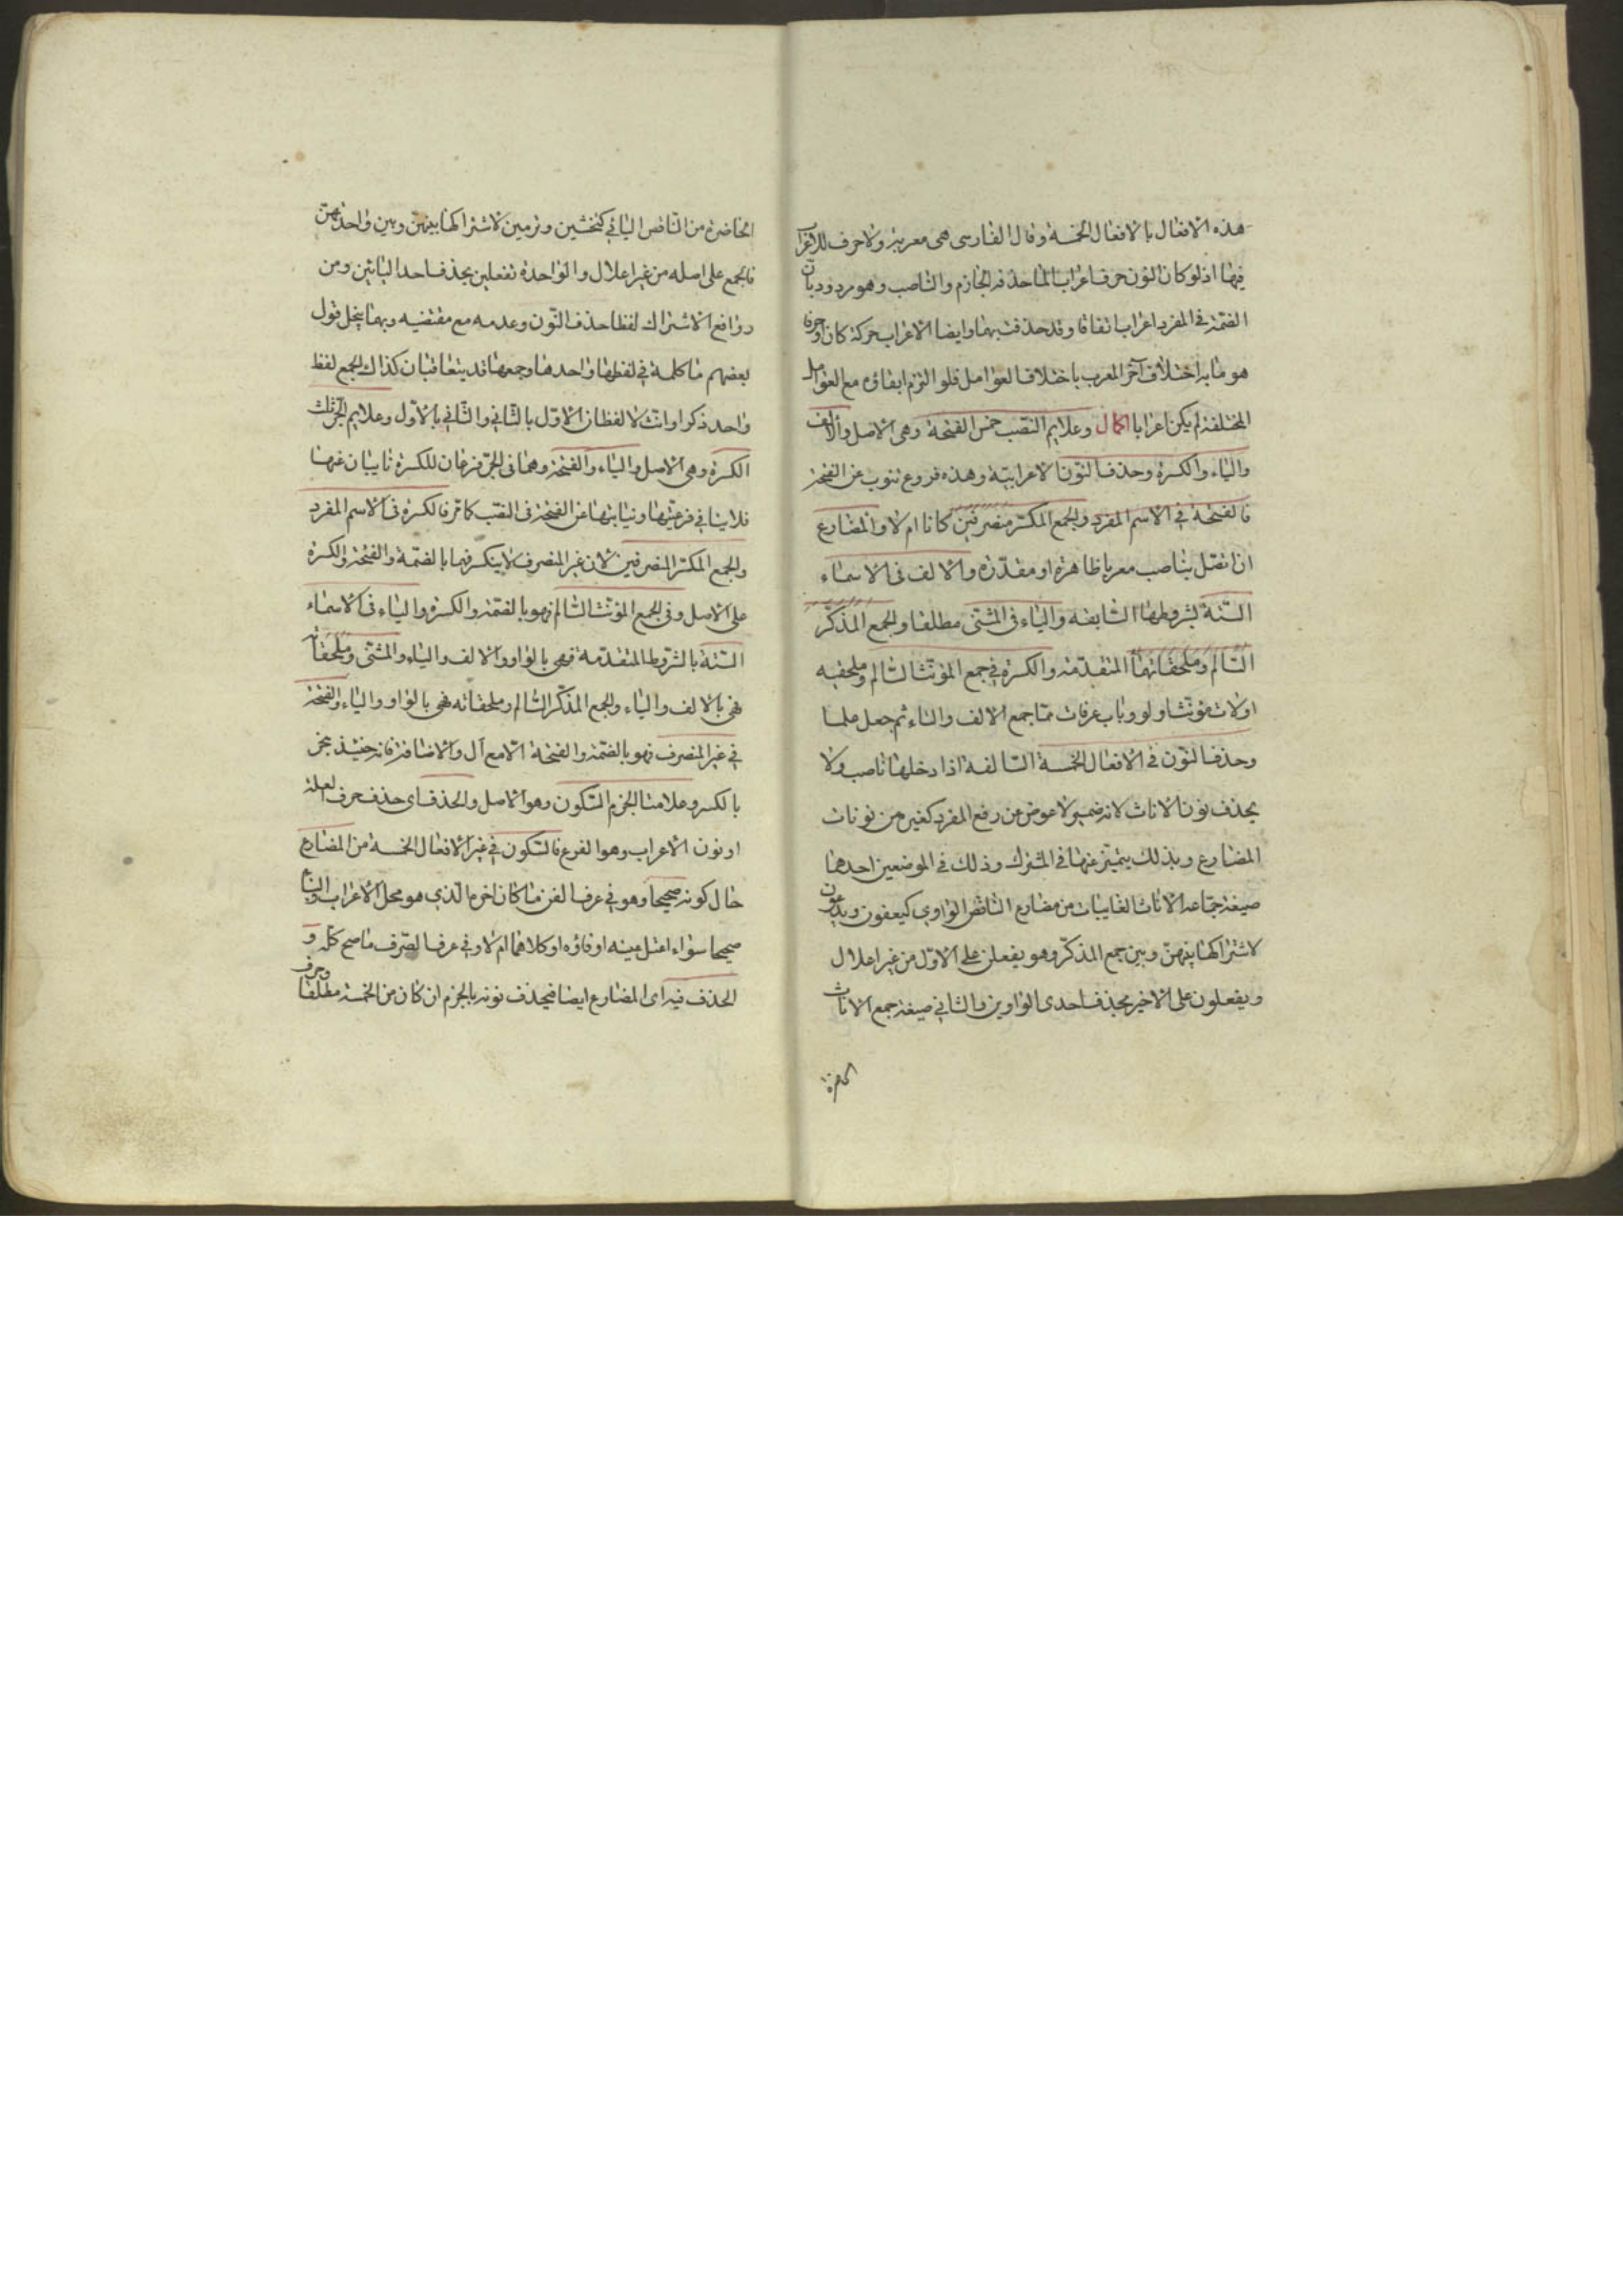 هذه الافعال بالافعال الخمسة وقال الفارسى هى معربة ولا حرف للاعراب
فيها اذ لو كان النون حرف اعراب لما حذفه الجازم والناصب وهو مردود بان
الضمة فى المفرد اعراب اتفاقا وقد حذفت بهما وايضا الاعراب حركة كان او حرفا
هو ما به اختلاف آخر المعرب باختلاف العوامل فلو التزم ابقاؤه مع العوامل
المختلفة لم يكن اعرابا اكمال وعلايم النصب خمس الفتحة وهى الاصل والالف
والياء والكسرة وحذف النون الاعرابية وهذه فروع تنوب عن الفتحة
فالفتحة فى الاسم المفرد والجمع المكسر منصرفين كانا ام لا والمضارع
ان اتصل بناصب معربا ظاهرة او مقدرة والالف فى الاسماء
الستة بشروطها السابقة والياء فى المثنى مطلقا والجمع المذكر
السالم وملحقاتهما المتقدمة والكسرة فى جمع المؤنث السالم وملحقيه
اولات مؤنث اولو وباب عرفات مما جمع الالف والتاء ثم جعل علما
وحذف النون فى الافعال الخمسة السالفة اذا دخلها ناصب ولا
يحذف نون الاناث لانه ضمير لا عوض عن رفع المفرد كغيره من نونات
المضارع وبذلك يتميز عنها فى المشترك وذلك فى الموضعين احدهما
صيغة جماعة الاناث الغايبات من مضارع الناقص الواوي كيعفون ويدعون
لاشتراكها بينهن وبين جمع المذكر وهو يفعلن على الاول من غير اعلال
ويفعلون على الاخير بحذف احدى الواوين والثاني صيغة جمع الاناث
الحاضرة
الحاضرة من الناقص اليائي كتخشين وترمين لاشتراكها بينهن وبين واحدتهن
فالجمع على اصله من غير اعلال والواحدة تفعلين بحذف احد اليائين ومن
روافع الاشتراك لفظا حذف النون وعدمه مع مقتضيه وبهما ينحل قول
بعضهم ما كلمة في لفظها واحدها وجمعها قد يتعاقبان كذاك الجمع لفظ
واحد ذكرا وانث لا لفظان الاول بالثاني والثاني بالاول وعلايم الجر ثلث
الكسرة وهى الاصل والياء والفتحة وهما فى الجر فرعان للكسرة نايبان عنها
فلا ينافي فرعيتها ونيابتها عن الفتحة فى النصب كما مر فالكسرة فى الاسم المفرد
والجمع المكسر المنصرفين لان غير المنصرف لا ينكسر فهما بالضمة والفتحة والكسرة
على الاصل وفى الجمع المؤنث السالم فهو بالضمة والكسرة والياء فى الاسماء
الستة بالشروط المتقدمة فهى بالواو والالف والياء والمثنى وملحقاته
فهى بالالف والياء والجمع المذكر السالم وملحقاته فهى بالواو والياء والفتحة
في غير المنصرف فهو بالضمة والفتحة الا مع ال والاضافة فانه حينئذ يجر
بالكسر وعلامتا الجزم السكون وهو الاصل والحذف اى حذف حرف العلة
او نون الاعراب وهو الفرع فالسكون في غير الافعال الخمسة من المضارع
حال كونه صحيحا وهو في عرف الفن ما كان اخره الذي هو محل الاعراب والبناء
صحيحا سواء اعتل عينه او فاؤه او كلاهما ام لا وفي عرف الصرف ما صح كله و
الحذف فيه اى المضارع ايضا فيحذف نونه بالجزم ان كان من الخمسة مطلقا وحرف